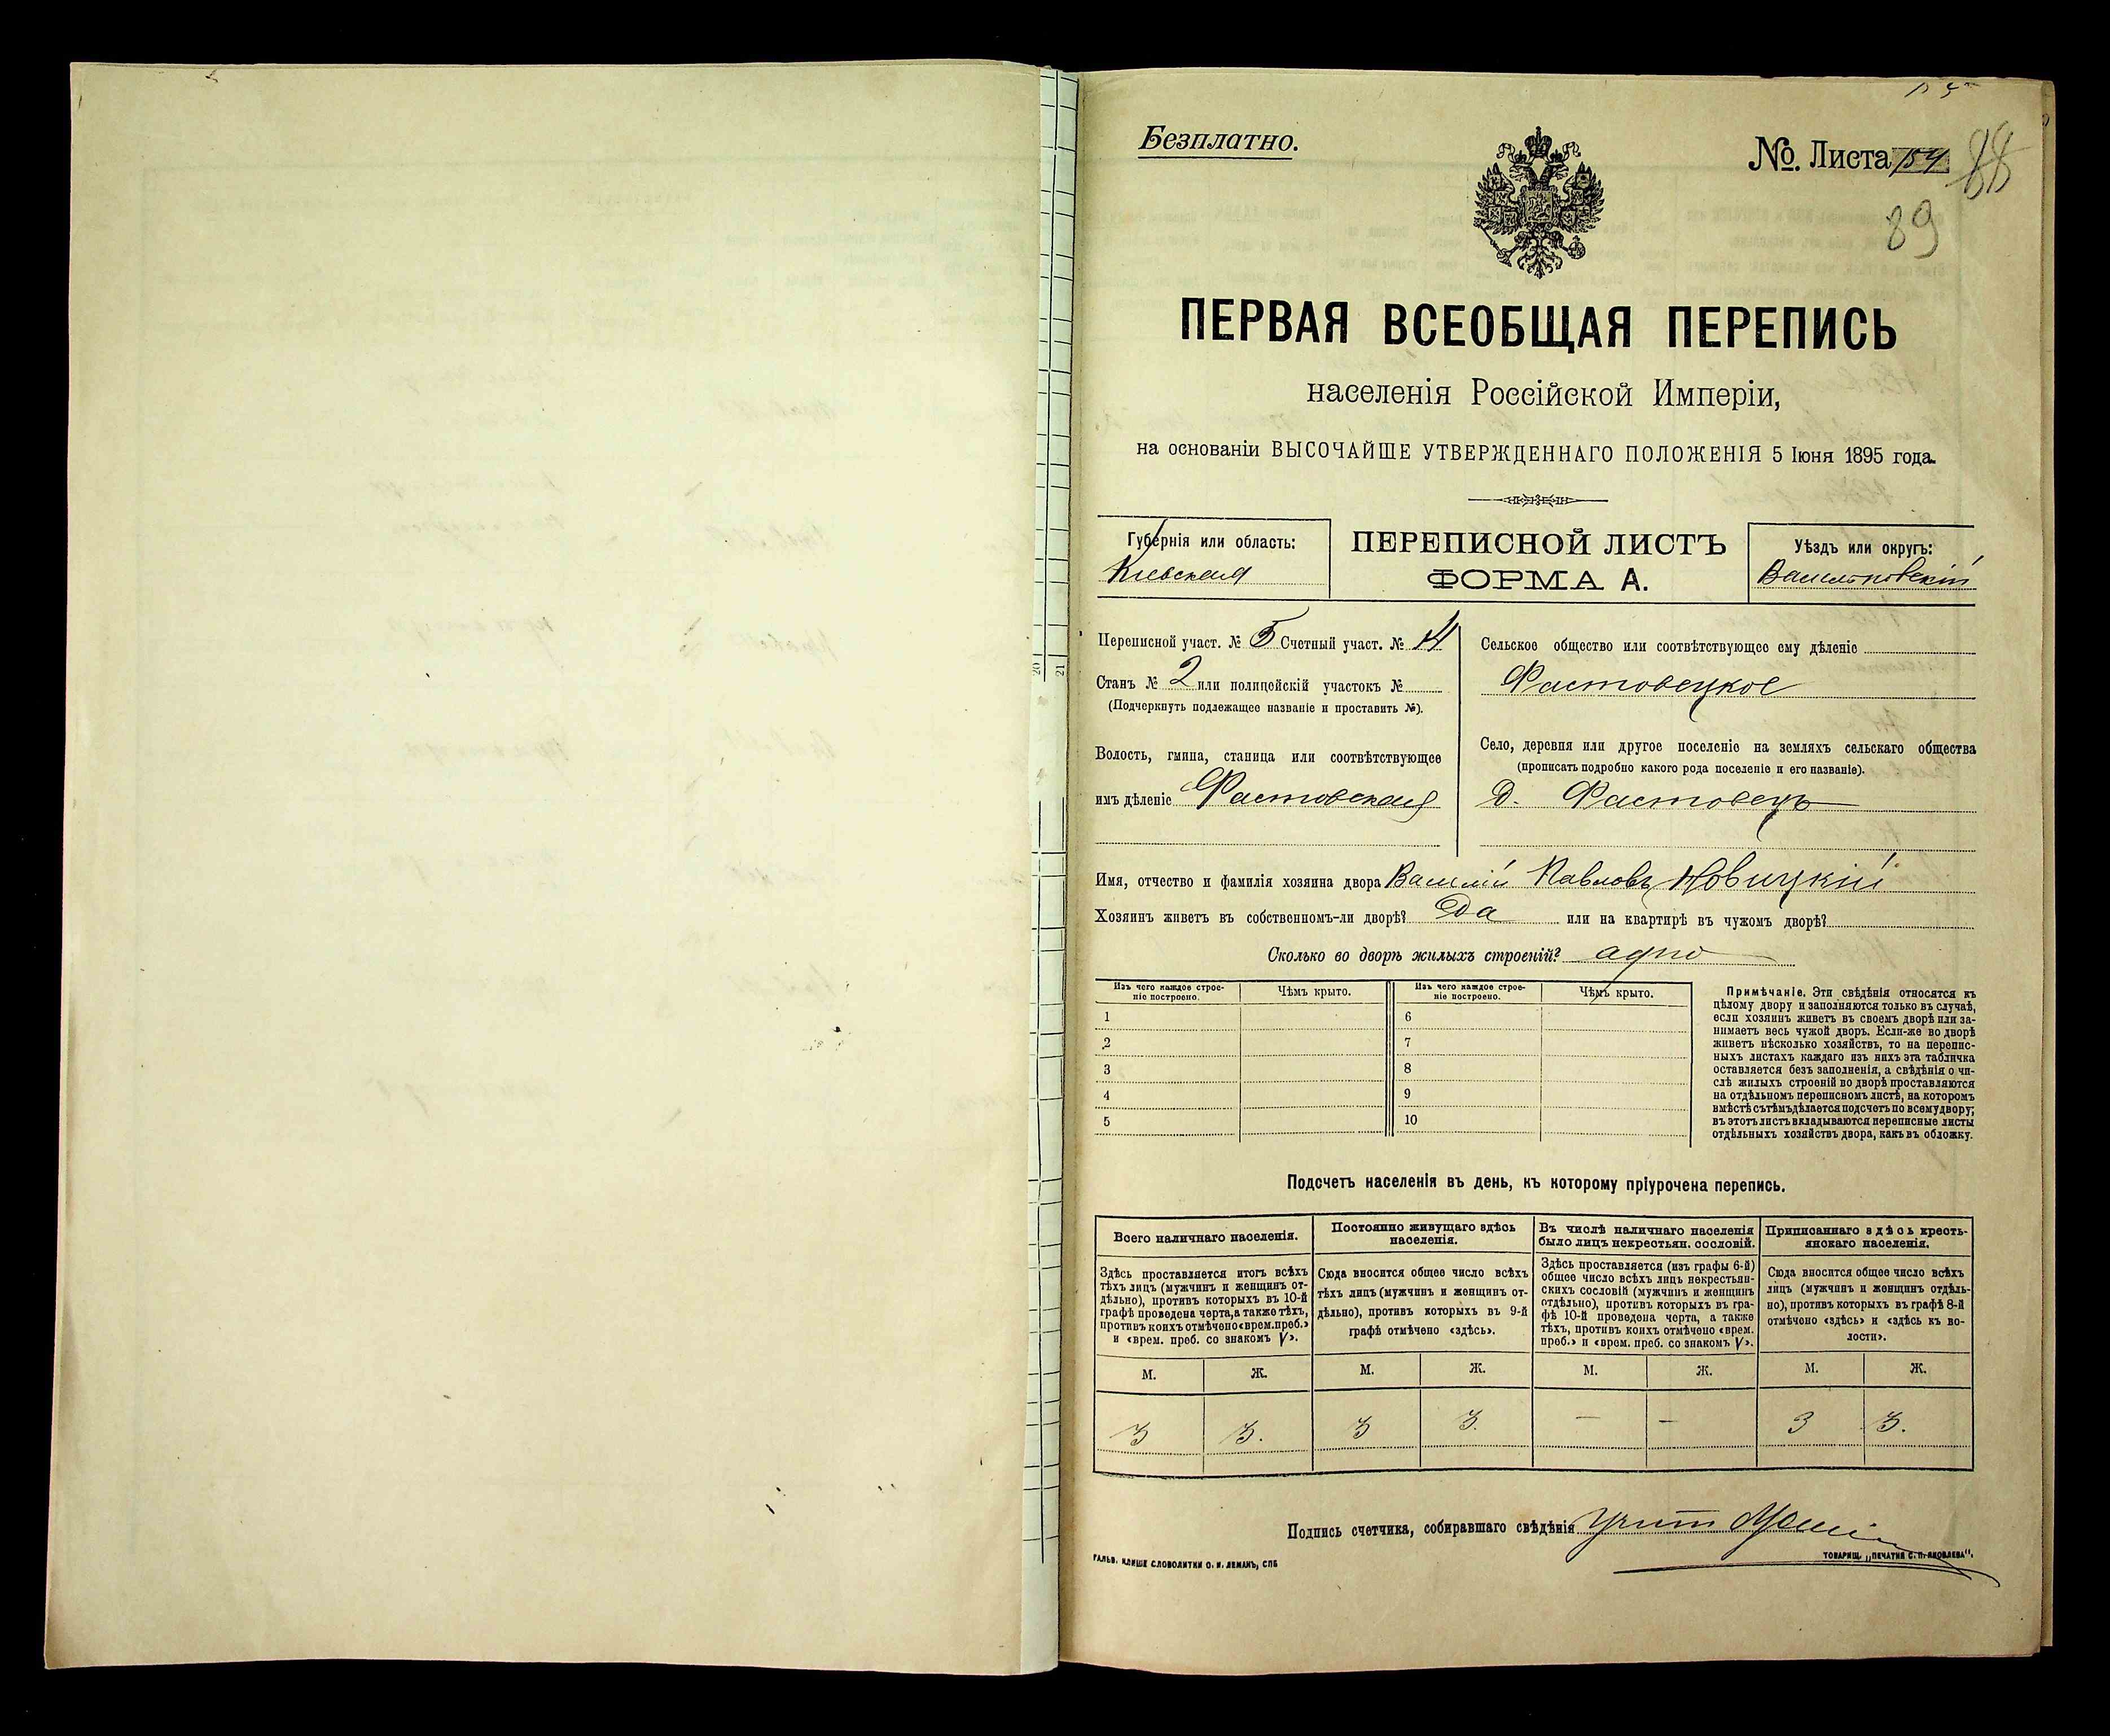 Безплатно.
№. Листа 154 88
89
ПЕРВАЯ ВСЕОБЩАЯ ПЕРЕПИСЬ
населенія Россійской Имперіи,
на основаніи ВЫСОЧАЙШЕ УТВЕРЖДЕННАГО ПОЛОЖЕНІЯ 5 Іюня 1895 года.
Губернія или область:
Кіевская
ПЕРЕПИСНОЙ ЛИСТЪ
ФОРМА А.
Уѣздъ или округъ:
Васильковскій
Переписной участ. № 5 Счетный участ. № 4
Станъ № 2 или полицейскій участокъ №
(Подчеркнуть подлежащее названіе и проставить №).
Волость, гмина, станица или соотвѣтствующее
имъ дѣленіе Фастовская
Сельское общество или соотвѣтствующее ему дѣленіе
Фастовецкое
Село, деревня или другое поселеніе на земляхъ сельскаго общества
(прописать подробно какого рода поселеніе и его названіе).
д. Фастовецъ
Имя, отчество и фамилія хозяина двора Василій Павловъ Новицкій
Хозяинъ живетъ въ собственномъ-ли дворѣ? Да или на квартирѣ въ чужомъ дворѣ?
Сколько во дворѣ жилыхъ строеній? адно
Изъ чего каждое строе-
ніе построено.
Чѣмъ крыто.
Изъ чего каждое строе-
ніе построено.
Чѣмъ крыто.
1 6
2 7
3 8
4 9
5 10
Примѣчаніе. Эти свѣдѣнія относятся къ
цѣлому двору и заполняются только въ случаѣ,
если хозяинъ живетъ въ своемъ дворѣ или за-
нимаетъ весь чужой дворъ. Если-же во дворѣ
живетъ нѣсколько хозяйствъ, то на перепис-
ныхъ листахъ каждаго изъ нихъ эта табличка
оставляется безъ заполненія, а свѣдѣнія о чи-
слѣ жилыхъ строеній во дворѣ проставляются
на отдѣльномъ переписномъ листѣ, на которомъ
вмѣстѣ съ тѣмъ дѣлается подсчетъ по всему двору;
въ этотъ листъ вкладываются переписные листы
отдѣльныхъ хозяйствъ двора, какъ въ обложку.
Подсчетъ населенія въ день, къ которому пріурочена перепись.
Всего наличнаго населенія.
Здѣсь проставляется итогъ всѣхъ
тѣхъ лицъ (мужчинъ и женщинъ от-
дѣльно), противъ которыхъ въ 10-й
графѣ проведена черта, а также тѣхъ,
противъ коихъ отмѣчено «врем. преб.»
и «врем. преб. со знакомъ V».
Постоянно живущаго здѣсь
населенія.
Сюда вносится общее число всѣхъ
тѣхъ лицъ (мужчинъ и женщинъ от-
дѣльно), противъ которыхъ въ 9-й
графѣ отмѣчено «здѣсь».
Въ числѣ наличнаго населенія
было лицъ некрестьян. сословій.
Здѣсь проставляется (изъ графы 6-й)
общее число всѣхъ лицъ некрестьян-
скихъ сословій (мужчинъ и женщинъ
отдѣльно), противъ которыхъ въ гра-
фѣ 10-й проведена черта, а также
тѣхъ, противъ коихъ отмѣчено «врем.
преб.» и «врем. преб. со знакомъ V».
Приписаннаго здѣсь кресть-
янскаго населенія.
Сюда вносится общее число всѣхъ
лицъ (мужчинъ и женщинъ отдѣль-
но), противъ которыхъ въ графѣ 8-й
отмѣчено «здѣсь» и «здѣсь къ во-
лости».
М. Ж. М. Ж. М. Ж. М. Ж.
3 3. 3 3. — — 3 3.
Подпись счетчика, собиравшаго свѣдѣнія
ГАЛЬВ. КЛИШЕ СЛОВОЛИТНИ О. И. ЛЕМАНЪ, СПБ
ТОВАРИЩ. „ПЕЧАТНЯ С. П. ЯКОВЛЕВА“.
20 21